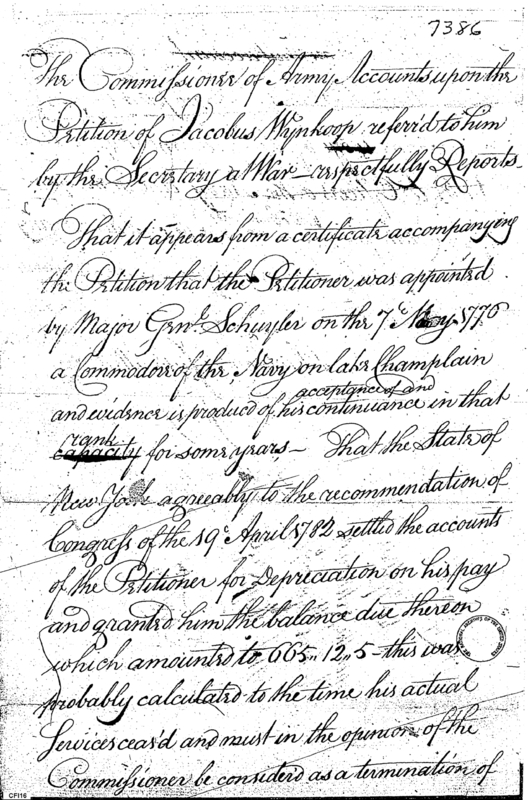 7386
The Commissioner of Army Accounts upon the
Petition of Jacobus Wynkoop referd to him
by the Secretary at War - respectfully Reports -
That it appears from a certificate accompanying
the Petition that the Petitioner was appointed
by Major Genl. Schuyler on the 7th May 1776
a Commodore of the Navy on lake Champlain
acceptance of and
and evidence is producd of his continuance in that
rank
capacity for some years - That the State of
New York agreeably to the recommendation of
Congress of the 19th April 1782 settled the accounts
of the Petitioner for Depreciation on his pay
and granted him the balance due thereon
which amounted to 665,,12,,5 - this was
probably calculated to the time his actual
Services ceas'd and must in the opinion of the
Commissioner be considerd as a termination of
CFI16